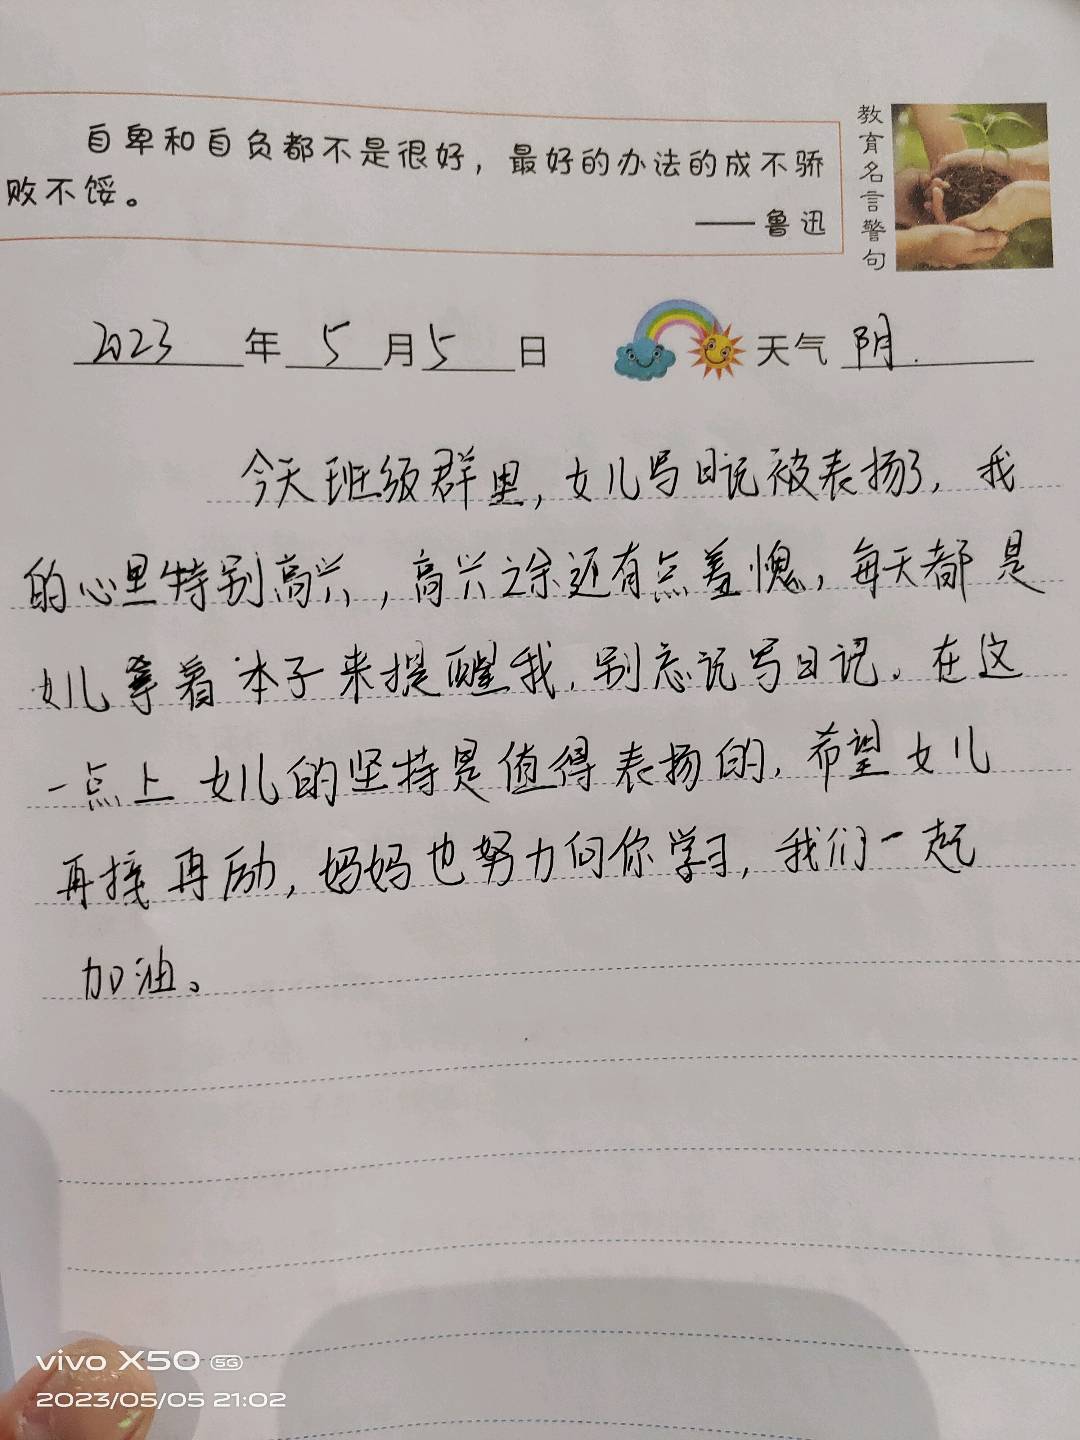 自卑和自负都不是很好，最好的办法的成不骄
败不馁。
——鲁迅
教育名言警句
2023年5月5日 天气 阴.
今天班级群里,女儿写日记被表扬了,我
的心里特别高兴,高兴之余还有点羞愧,每天都是
女儿拿着本子来提醒我,别忘记写日记。在这
一点上女儿的坚持是值得表扬的,希望女儿
再接再励,妈妈也努力向你学习,我们一起
加油。
vivo X50 5G
2023/05/05 21:02